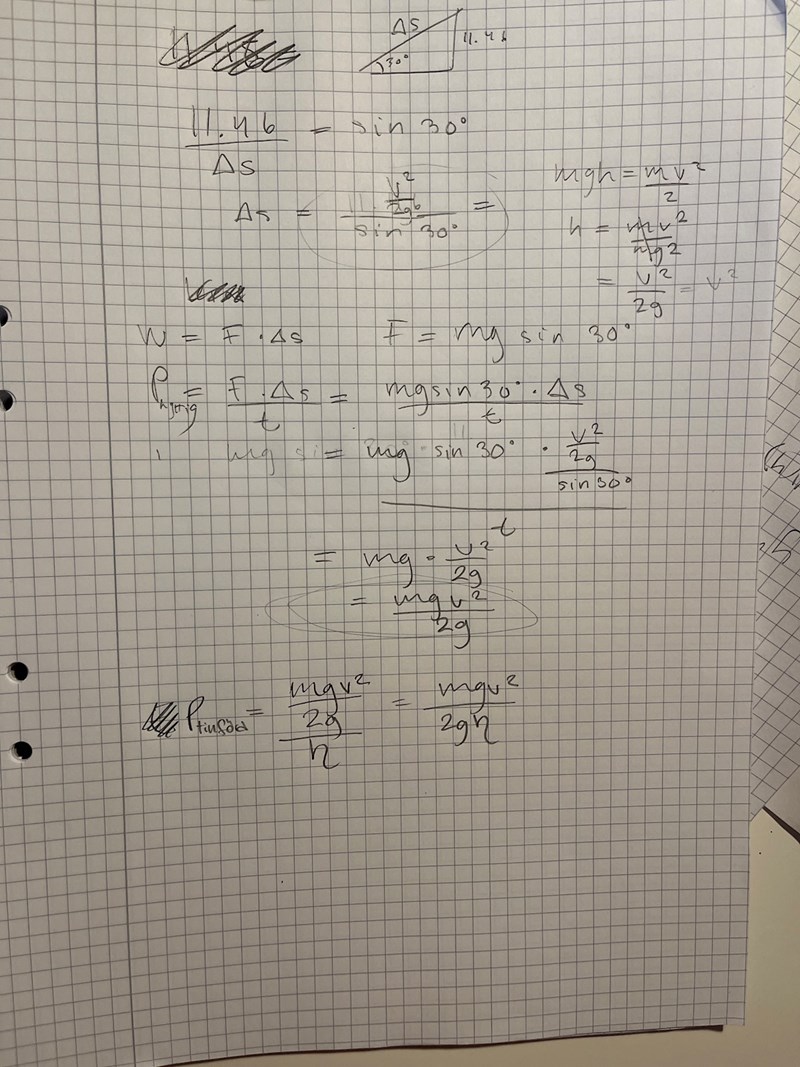 Δs
11.46
30°
11.46 / Δs = sin 30°
Δs = (v²/2g) / sin 30° =
mgh = mv²/2
h = mv²/mg2
= v²/2g = v²
W = F · Δs F = mg sin 30°
P = F · Δs / t = mg sin 30° · Δs / t
mg = mg sin 30° · (v²/2g) / sin 30°
t
= mg · v²/2g
= mgv²/2g
P tillförd = (mgv²/2g) / η = mgv²/2gη